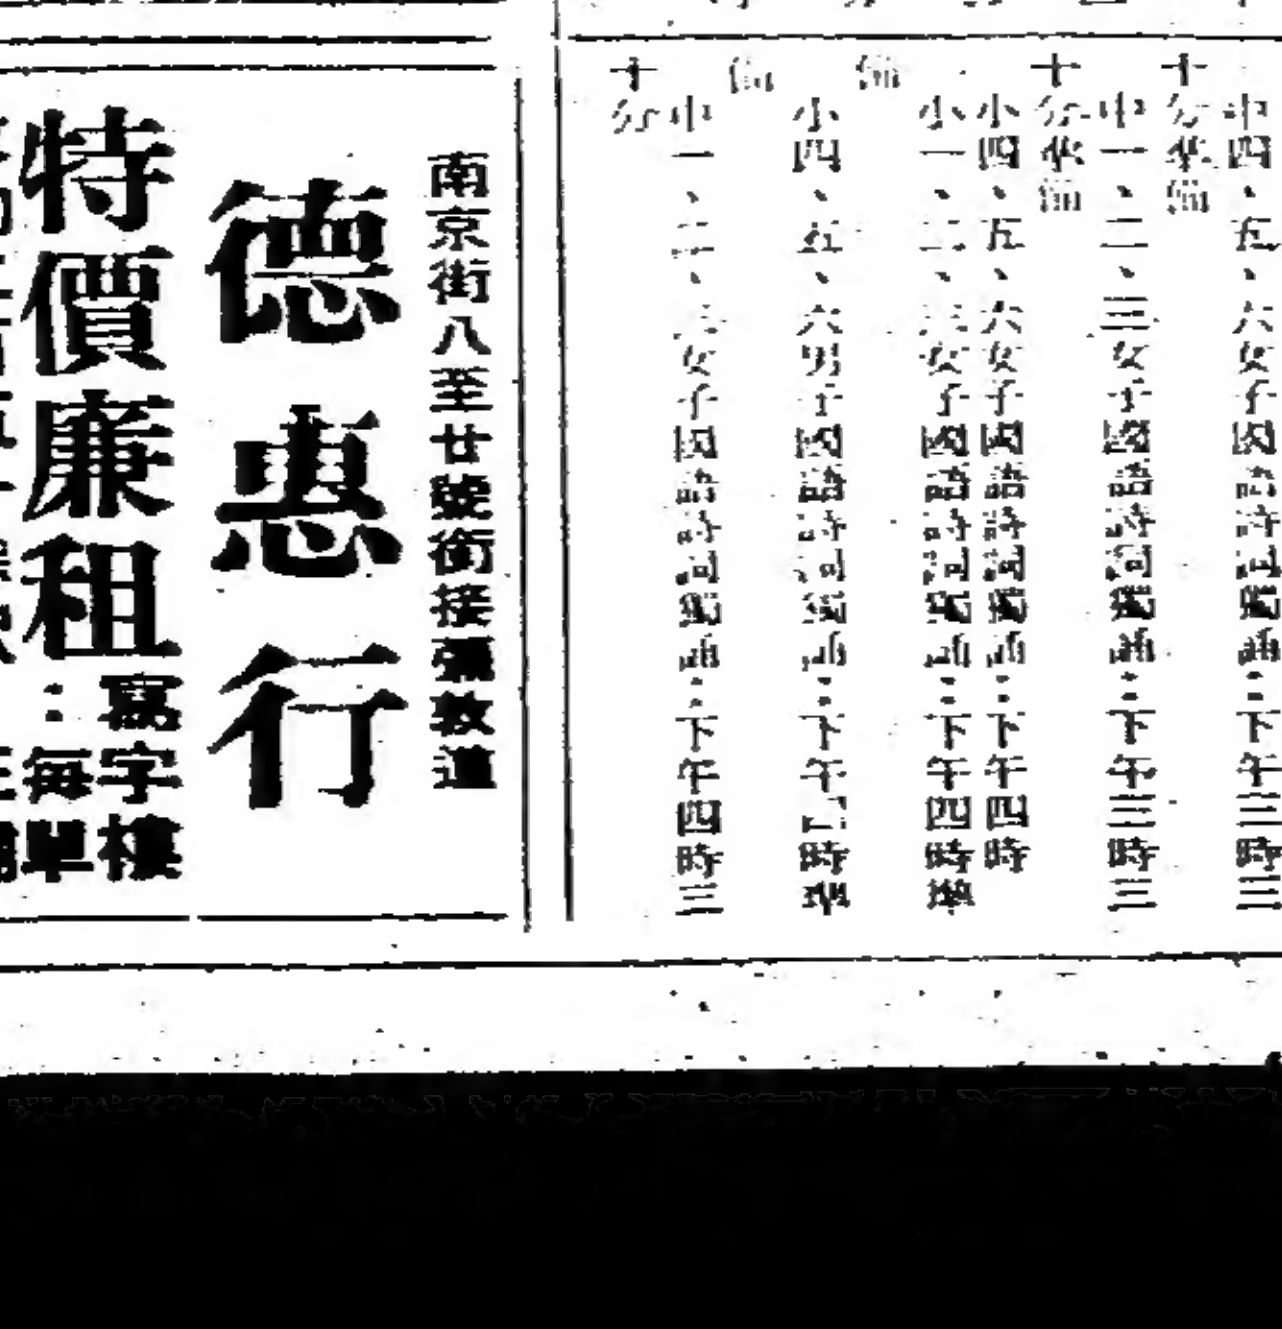 中四、五、六女子國語詩詞獨誦：下午三時三
十分準備
中一、二、三女子國語詩詞獨誦：下午三時三
十分準備
小四、五、六女子國語詩詞獨誦：下午四時
小一、二、三女子國語詩詞獨誦：下午四時準
備
小四、五、六男子國語詩詞獨誦：下午四時準
備
中一、二、三女子國語詩詞獨誦：下午四時三
十分
南京街八至廿號銜接彌敦道
德惠行
特價廉租
寫字樓
：每單